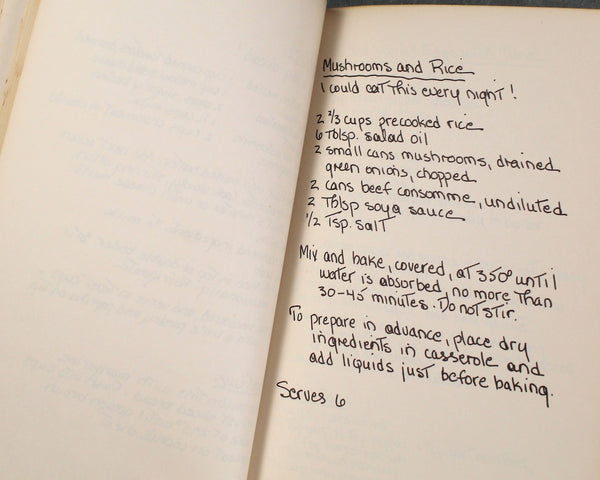 Mushrooms and Rice
I could eat this every night!
2 2/3 cups precooked rice
6 Tblsp. salad oil
2 small cans mushrooms, drained
green onions, chopped
2 cans beef consomme, undiluted
2 Tblsp soya sauce
1/2 Tsp. salt
Mix and bake, covered, at 350° until
water is absorbed, no more than
30-45 minutes. Do not stir.
To prepare in advance, place dry
ingredients in casserole and
add liquids just before baking.
Serves 6